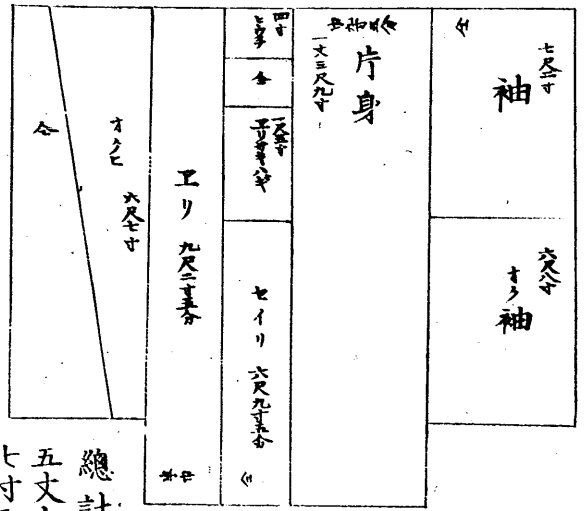 七尺二寸
袖
六尺八寸
オク
袖
片身
一丈三尺九寸
四寸
ヒウチ
仝
一尺五寸
ヱリサキハギ
セイリ 六尺九寸五分
ヱリ 九尺二寸五分
オクヒ 六尺七寸
仝
總計
五丈
七寸